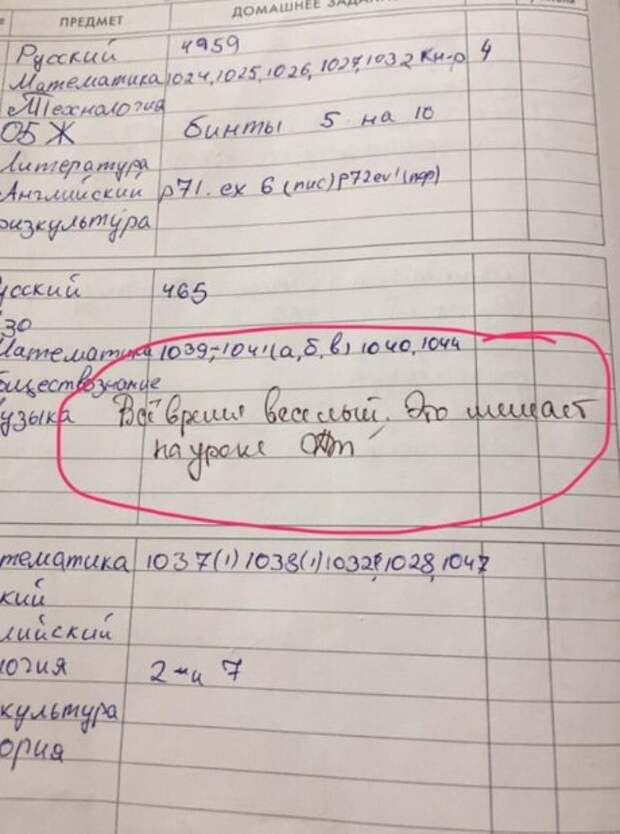 ПРЕДМЕТ ДОМАШНЕЕ ЗАДА
Русский 4959
Математика 1024, 1025, 1026, 1027, 1032 Кн-р 4
Технология
ОБЖ бинты 5 на 10
Литература
Английский p71. ex 6 (пис) p72 ex 1 (пер)
физкультура
усский 465
ИЗО
Математика 1039, 1041 (а, б, в) 1040, 1044
бществознание
узыка Всё время веселый. Это мешает
на уроке
тематика 1037(1) 1038(1) 1032, 1028, 1047
кий
лийский
логия 2 и 7
культура
ория